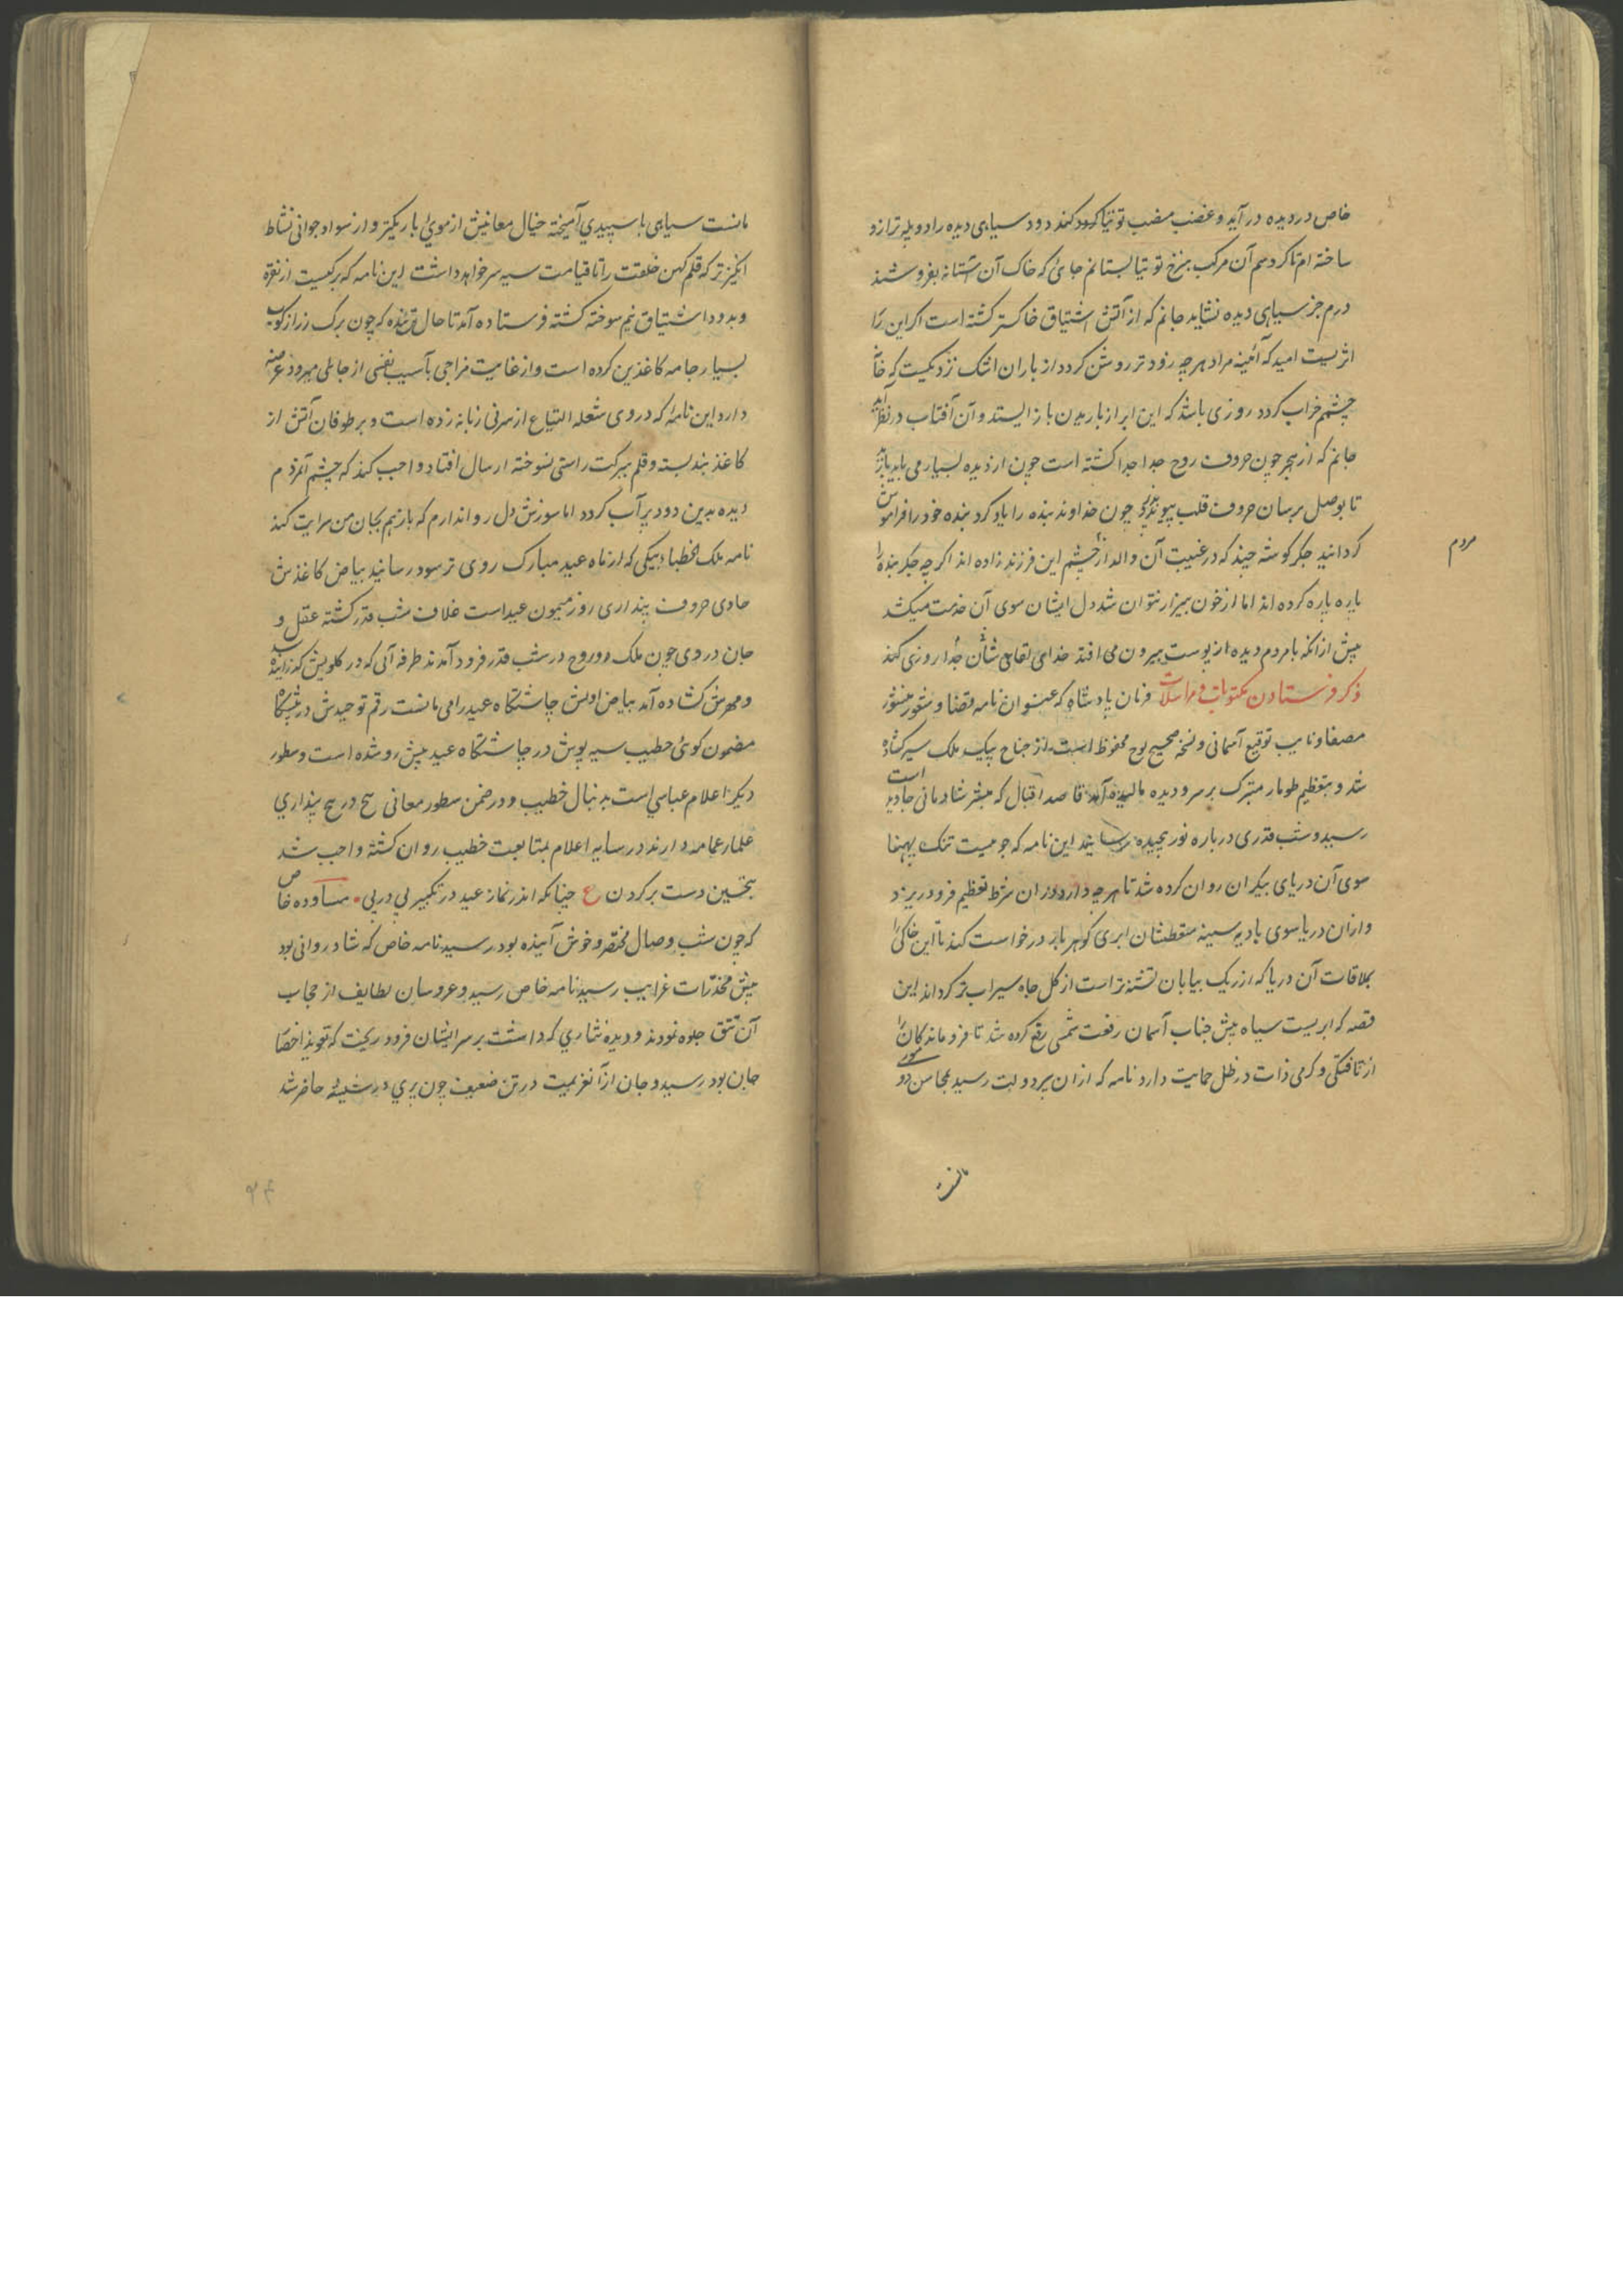 خاص در دیده در آید و غضب مضب توتیا کند دود سیاهی دیده را دو پله ترازو
ساخته ام تا کردسم آن مرکب بنرخ توتیا بستانم جائی که خاک آن آستانه بفروشند
درم جز سیاهی دیده نشاید جانم که از آتش اشتیاق خاکستر کشته است اکر این را
اثریست امید که آئینه مراد هر چه زودتر روشن کردد از باران اشک نزدیکست که خانه
چشم خراب کردد روزی باشد که این ابر از باریدن باز ایستد و آن آفتاب در نظر آید
جانم که از هجر چون حروف روح جدا جدا کشته است چون از دیده بسیار می باید
تا بوصل برسان حروف قلب پیوندد چون خداوند بنده را یاد کرد بنده خود را فراموش
کردانید جکر کوشه چند که در غیبت آن والد از چشم این فرزند زاده اند اکر چه جکر بنده را
مردم
پاره پاره کرده اند اما از خون بیزار نتوان شد دل ایشان سوی آن خدمت میکشد
پیش از انکه با مردم دیده از پوست بیرون می افتند خدای لقای شان جدا روزی کند
ذکر فرستادن مکتوبات و مراسلات فرمان پادشاه که عنوان نامه قضا و منشور
مصفا و نایب توقیع آسمانی و نسخه صحیح لوح محفوظ است از جناح پیک ملک سیر کشاده
شد و بتعظیم طومار متبرک بر سر و دیده مالیده آمد قاصد اقبال که مبشر شادمانی جاوید است
رسید و شب قدری در پاره نور پیچیده رسانید این نامه که جوئیست تنک پهنا
سوی آن دریای بیکران روان کرده شد تا هر چه دارد در ان شرط تعظیم فرو دریزد
و ازان دریا سوی بادیه سینه متعطشان ابری کوهر بار درخواست کند تا این خاکی را
بملاقات آن دریا که از ریک بیابان تشنه تر است از کل جاه سیراب تر کرداند این
قصه که ابریست سیاه پیش جناب آسمان رفعت شمسی رفع کرده شد تا فروماندکان را
از تافتکی و کرمی ذات در ظل حمایت دارد نامه که از ان پیر دولت رسید بمحاسن دو
مانست
مانست سیاهی با سپیدی آمیخته خیال معانیش از موئی باریکتر و از سواد جوانی نشاط
انکیز تر که قلم کهن خلقت را تا قیامت سیه سر خواهد داشت این نامه که برکیست از نقره
و بدود اشتیاق نیم سوخته کشته فرستاده آمد تا حال بنده که چون برک زر از کوب
بسیار جامه کاغذین کرده است و از غایت مزاجی بآسیب نفسی از جا می رود
دارد این نامه که در وی شعله التیاع از سر نی زبانه زده است و بر طوفان آتش از
کاغذ بند بسته و قلم ببرکت راستی نسوخته ارسال افتاد واجب کند که چشم آن مردم
دیده بدین دود پر آب کردد اما سوزش دل روا ندارم که باز هم بجان من سرایت کند
نامه ملک الخطبا پیکی که از ماه عید مبارک روی تر سود رسانید بیاض کاغذش
حاوی حروف پنداری روز میمون عید است غلاف شب قدر کشته عقل و
جان در وی چون ملک و روح در شب قدر فرود آمدند طرفه آنی که در کلویش
و مهرش کشاده آمد بیاض اولش چاشتکاه عید را می مانست رقم توحیدش در پیشکاه
مضمون کوئی خطیب سیه پوش در چاشتکاه عید پیش رو شده است و سطور
دیکر اعلام عباسی است به دنبال خطیب و در ضمن سطور معانی پیچ در پیچ پنداری
علما عمامه دارند در سایه اعلام بمتابعت خطیب روان کشته واجب شد
بتحسین دست بر کردن ع چنانکه اندر نماز عید در تکبیر پی در پی مساوده خاص
که چون شب وصال مختصر و خوش آینده بود رسید نامه خاص که شادروانی بود
پیش مخدرات غرایب رسید نامه خاص رسید و عروسان لطایف از حجاب
آن تتق جلوه نمودند و دیده نثاری که داشت بر سر ایشان فرو ریخت
جان بود رسید و جان از آن عزیمت در تن ضعیف چون پری در شیشه حاضر شد
۹۴